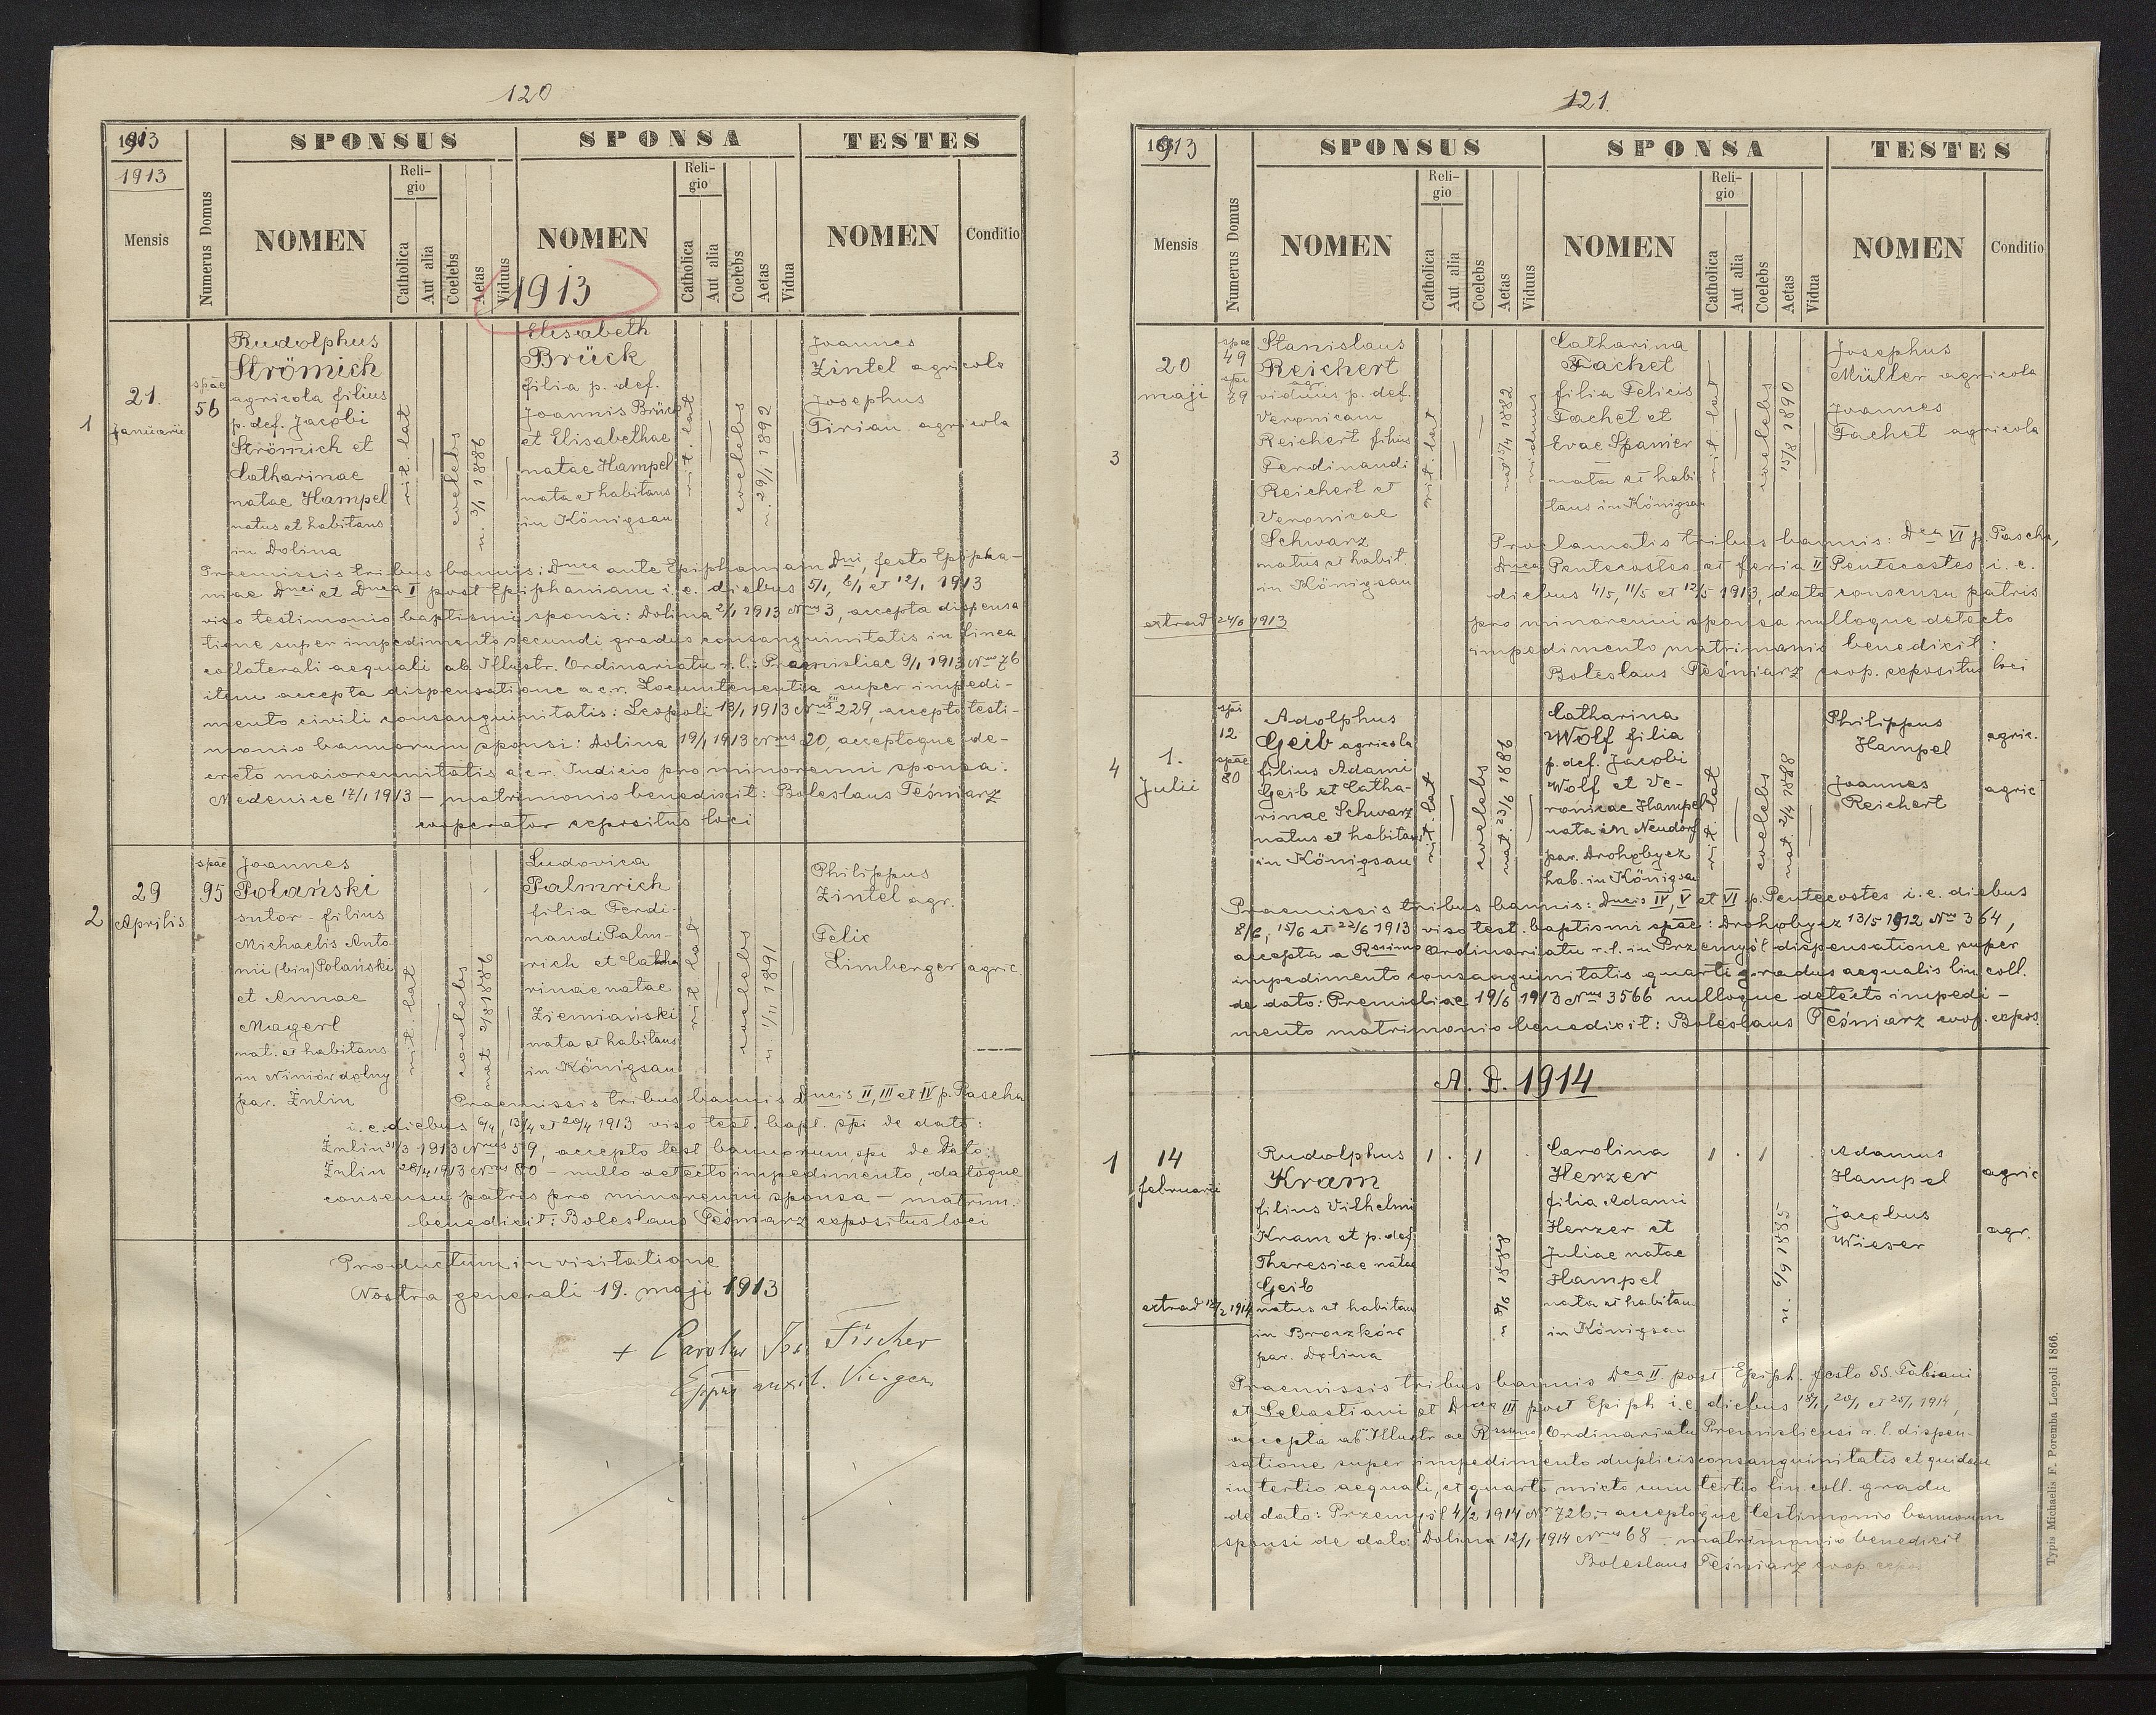 120
1913
SPONSUS
SPONSA
TESTES
1913
Mensis
Numerus Domus
NOMEN
Reli-
gio
Catholica
Aut alia
Coelebs
Aetas
Viduus
NOMEN
1913
Reli-
gio
Catholica
Aut alia
Coelebs
Aetas
Vidua
NOMEN
Conditio
1
21.
Januarii
spae
56
Rudolphus
Strömich
agricola filius
p. def. Jacobi
Strömich et
Catharinae
natae Hampel
natus et habitans
in Dolina
rit. lat
coelebs
n. 3/1 1886
Elisabeth
Brück
filia p. def.
Joannis Brück
et Elisabethae
natae Hampel
nata et habitans
in Königsau
rit. lat
coelebs
n. 29/1 1892
Joannes
Zintel agricola
Josephus
Tirian agricola
Praemissis tribus bannis: Dnca ante Epiphaniam Dni, festo Epipha-
niae Dnci et Dnca I post Epiphaniam i. e. diebus 5/1, 6/1 et 12/1 1913
viso testimonio baptismi sponsi: Dolina 2/1 1913 Nrus 3, accepta dispensa
tione super impedimento secundi gradus consanguinitatis in linea
collaterali aequali ab Illustr. Ordinariatu r. l.: Praemisliae 9/1 1913 Nrus 76
item accepta dispensatione a c. r. Locumtenentia super impedi-
mento civili consanguinitatis: Leopoli 13/1 1913 Nrus XII 229, accepto testi-
monio bannorum sponsi: Dolina 19/1 1913 Nrus 20, acceptoque de-
creto maiorennitatis a c. r. Iudicio pro minorenni sponsa:
Medenice 17/1 1913 – matrimonio benedixit: Boleslaus Pésniarz
cooperator expositus loci
2
29
Aprilis
spae
95
Joannes
Polański
sutor - filius
Michaelis Anto-
nii (bin) Polański
et Annae
Magerl
nat. et habitans
in Niniów dolny
par. Żulin
rit. lat
coelebs
nat 2/8 1886
Ludovica
Palmrich
filia Ferdi-
nandi Palm-
rich et Catha
rinae natae
Ziemiański
nata et habitans
in Königsau
rit lat
coelebs
n. 1/11 1891
Philippus
Zintel agr.
Felix
Limberger agric.
Praemissis tribus bannis Dncis II, III et IV p. Pascha
i. e. diebus 6/4, 13/4 et 20/4 1913 viso test. bapt. spi de dato:
Żulin 31/3 1913 Nrus 59, accepto test bannorum spi de dato:
Żulin 28/4 1913 Nrus 80 – nullo detecto impedimento, datoque
consensu patris pro minorenni sponsa – matrim.
benedixit: Boleslaus Pésniarz expositus loci
Productum in visitatione
Nostra generali 19. maji 1913
+ Carolus Jos. Fischer
Eppus auxil. Vic. gen.
121.
1913
SPONSUS
SPONSA
TESTES
Mensis
Numerus Domus
NOMEN
Reli-
gio
Catholica
Aut alia
Coelebs
Aetas
Viduus
NOMEN
Reli-
gio
Catholica
Aut alia
Coelebs
Aetas
Vidua
NOMEN
Conditio
3
20
maji
spae
49
spi
79
Stanislaus
Reichert
agr.
viduus p. def.
Veronicam
Reichert filius
Ferdinandi
Reichert et
Veronicae
Schwarz
natus et habit.
in Königsau
rit. lat
nat 15/4 1882
viduus
Catharina
Fachet
filia Felicis
Fachet et
Evae Spanier
nata et habi
tans in Königsau
rit. lat
coelebs
15/8 1890
Josephus
Müller agricola
Joannes
Fachet agricola
extrad 24/6 1913
Proclamatis tribus bannis: Dca VI p. Pascha,
Dnca Pentecostes et feria II Pentecostes i. e.
diebus 4/5, 11/5 et 12/5 1913, dato consensu patris
pro minorenni sponsa nulloque detecto
impedimento matrimonio benedixit:
Boleslaus Pésniarz coop. expositus loci
4
1.
Julii
spi
12
spae
80
Adolphus
Geib agricola
filius Adami
Geib et Catha-
rinae Schwarz
natus et habitans
in Königsau
rit. lat
coelebs
nat. 23/6 1886
Catharina
Wolf filia
p. def. Jacobi
Wolf et Ve-
ronicae Hampel
nata in Neudorf
par. Drohobycz
hab. in Königsau
rit. lat
coelebs
nat. 2/4 1888
Philippus
Hampel
agric.
Joannes
Reichert
agric
Praemissis tribus bannis: Dncis IV, V et VI p. Pentecostes i. e. diebus
8/6, 15/6 et 22/6 1913 viso test. baptismi spae: Drohobycz 13/5 1912 Nrus 364,
accepta a Rssimo Ordinariatu r. l. in Przemyśl dispensatione super
impedimento consanguinitatis quarti gradus aequalis lin coll.
de dato: Premisliae 19/6 1913 Nrus 3566 nulloque detecto impedi-
mento matrimonio benedixit: Boleslaus Pésniarz coop. expos.
A. D. 1914
1
14
februarii
Rudolphus
Kram
filius Vilhelmi
Kram et p. def
Theresiae natae
Geib
natus et habitans
in Broczków
par. Dolina
1 . 1
n 8/6 1888
Carolina
Herzer
filia Adami
Herzer et
Juliae natae
Hampel
nata et habitans
in Königsau
1 . 1
n. 6/9 1885
Adamus
Hampel
agric
Jacobus
Wieser
agr.
extrad 18/2 1914
Praemissis tribus bannis Dca II. post Epiph. festo SS. Fabiani
et Sebastiani et Dnca III post Epiph i. e. diebus 18/1, 20/1 et 25/1 1914,
accepta ab Illustr ac Rssimo Ordinariatu Premisliensi r. l. dispen-
satione super impedimento duplicis consanguinitatis et quidem
in tertio aequali, et quarto mixto cum tertio lin. coll. gradu
de dato: Przemyśl 4/2 1914 Nr 726. – acceptoque testimonio bannorum
sponsi de dato: Dolina 12/1 1914 Nrus 68 – matrimonio benedixit
Boleslaus Pésniarz coop. expos
Typis Michaelis F. Poremba Leopoli 1866.